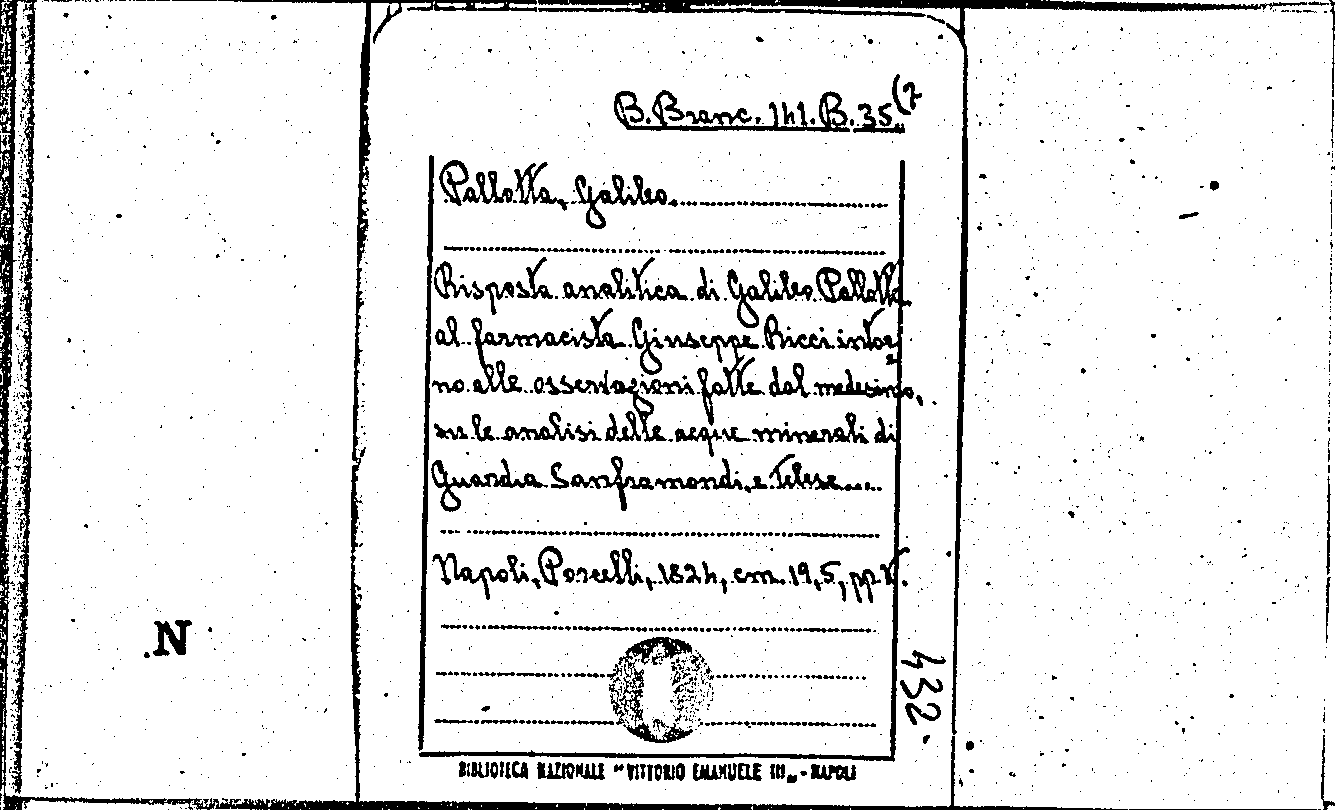 B. Branc. 141. B. 35 (7
Pallotta, Galileo.
Risposta analitica di Galileo Pallotta
al farmacista Giuseppe Ricci intor=
no alle osservazioni fatte dal medesimo,
su le analisi delle acque minerali di
Guardia Sanframondi, e Telese....
Napoli, Porcelli, 1824, cm. 19,5, pp.
432.
N
BIBLIOTECA NAZIONALE "VITTORIO EMANUELE III" - NAPOLI